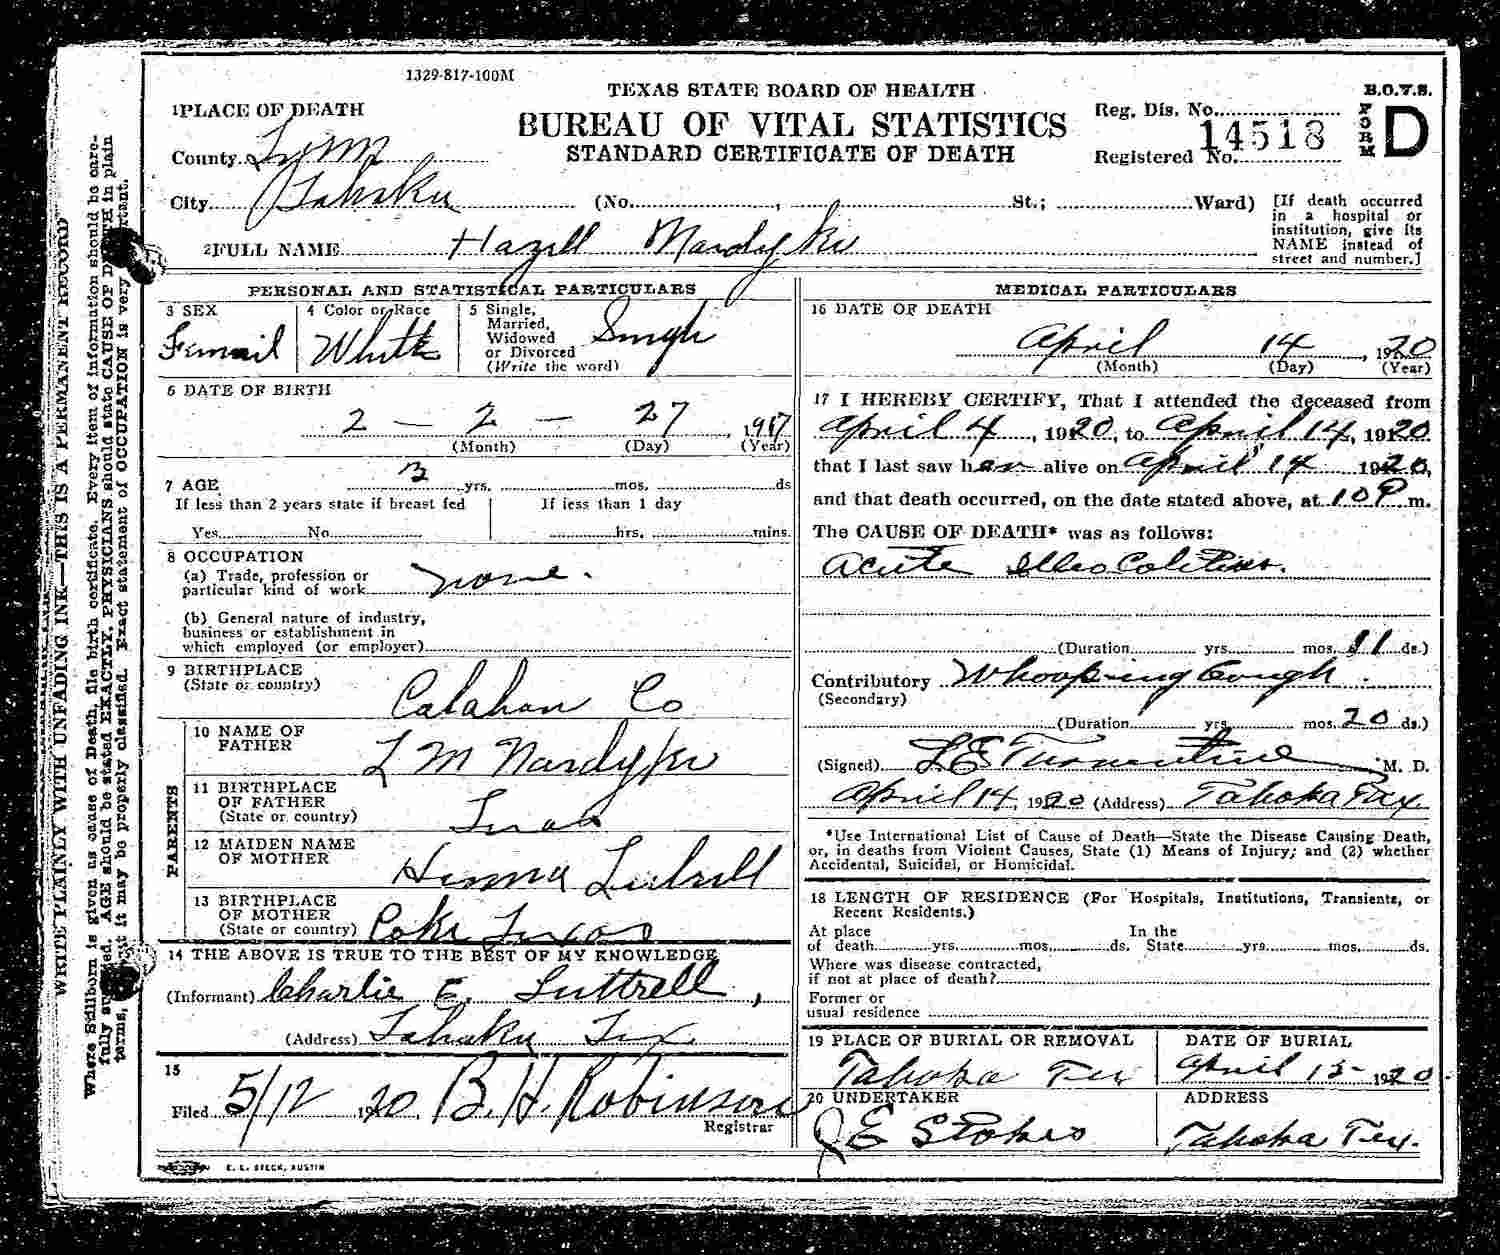 1329-817-100M
TEXAS STATE BOARD OF HEALTH
BUREAU OF VITAL STATISTICS
STANDARD CERTIFICATE OF DEATH
B.O.V.S.
FORM D
Reg. Dis. No.
Registered No. 14518
1 PLACE OF DEATH
County Lynn
City Tahoka (No. , St.; Ward)
[If death occurred
in a hospital or
institution, give its
NAME instead of
street and number.]
2 FULL NAME Hazell
PERSONAL AND STATISTICAL PARTICULARS
3 SEX
Femail
4 Color or Race
White
5 Single,
Married,
Widowed
or Divorced
(Write the word)
Single
6 DATE OF BIRTH
2 — 2 — 27, 1917
(Month) (Day) (Year)
7 AGE 3 yrs. mos. ds
If less than 2 years state if breast fed
Yes No
If less than 1 day
hrs. mins.
8 OCCUPATION
(a) Trade, profession or
particular kind of work none.
(b) General nature of industry,
business or establishment in
which employed (or employer)
9 BIRTHPLACE
(State or country)
Calahan Co
PARENTS
10 NAME OF
FATHER
L M
11 BIRTHPLACE
OF FATHER
(State or country)
12 MAIDEN NAME
OF MOTHER
13 BIRTHPLACE
OF MOTHER
(State or country) Coke Texas
14 THE ABOVE IS TRUE TO THE BEST OF MY KNOWLEDGE
(Informant) Charlie E. Luttrell,
(Address) Tahoka Tex
15
Filed 5/12 1920. B. H. Robinson
Registrar
MEDICAL PARTICULARS
16 DATE OF DEATH
April 14, 1920
(Month) (Day) (Year)
17 I HEREBY CERTIFY, That I attended the deceased from
April 4, 1920, to April 14, 1920
that I last saw her alive on April 14 1920,
and that death occurred, on the date stated above, at 10 P m.
The CAUSE OF DEATH* was as follows:
Acute Illeo Colitius.
(Duration yrs. mos. 11 ds.)
Contributory Whooping Cough.
(Secondary)
(Duration yrs. mos. 20 ds.)
(Signed) L E Turrentine M. D.
April 14, 1920 (Address) Tahoka Tex
*Use International List of Cause of Death—State the Disease Causing Death,
or, in deaths from Violent Causes, State (1) Means of Injury; and (2) whether
Accidental, Suicidal, or Homicidal.
18 LENGTH OF RESIDENCE (For Hospitals, Institutions, Transients, or
Recent Residents.)
At place
of death yrs. mos. ds.
In the
State yrs. mos. ds.
Where was disease contracted,
if not at place of death?
Former or
usual residence
19 PLACE OF BURIAL OR REMOVAL
Tahoka Tex
DATE OF BURIAL
April 15- 1920.
20 UNDERTAKER
J E Stokes
ADDRESS
Tahoka Tex.
E. L. STECK, AUSTIN
WRITE PLAINLY WITH UNFADING INK—THIS IS A PERMANENT RECORD
Where Stillborn is given as cause of Death, file birth certificate. Every item of information should be care-
fully supplied. AGE should be stated EXACTLY. PHYSICIANS should state CAUSE OF DEATH in plain
terms, it may be properly classified. Exact statement of OCCUPATION is very